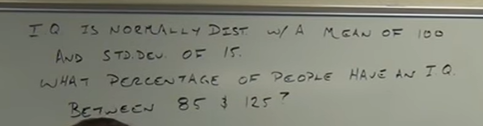 I Q IS NORMALLY DIST. W/ A MEAN OF 100
AND STD.DEV. OF 15.
WHAT PERCENTAGE OF PEOPLE HAVE AN I.Q.
BETWEEN 85 & 125?